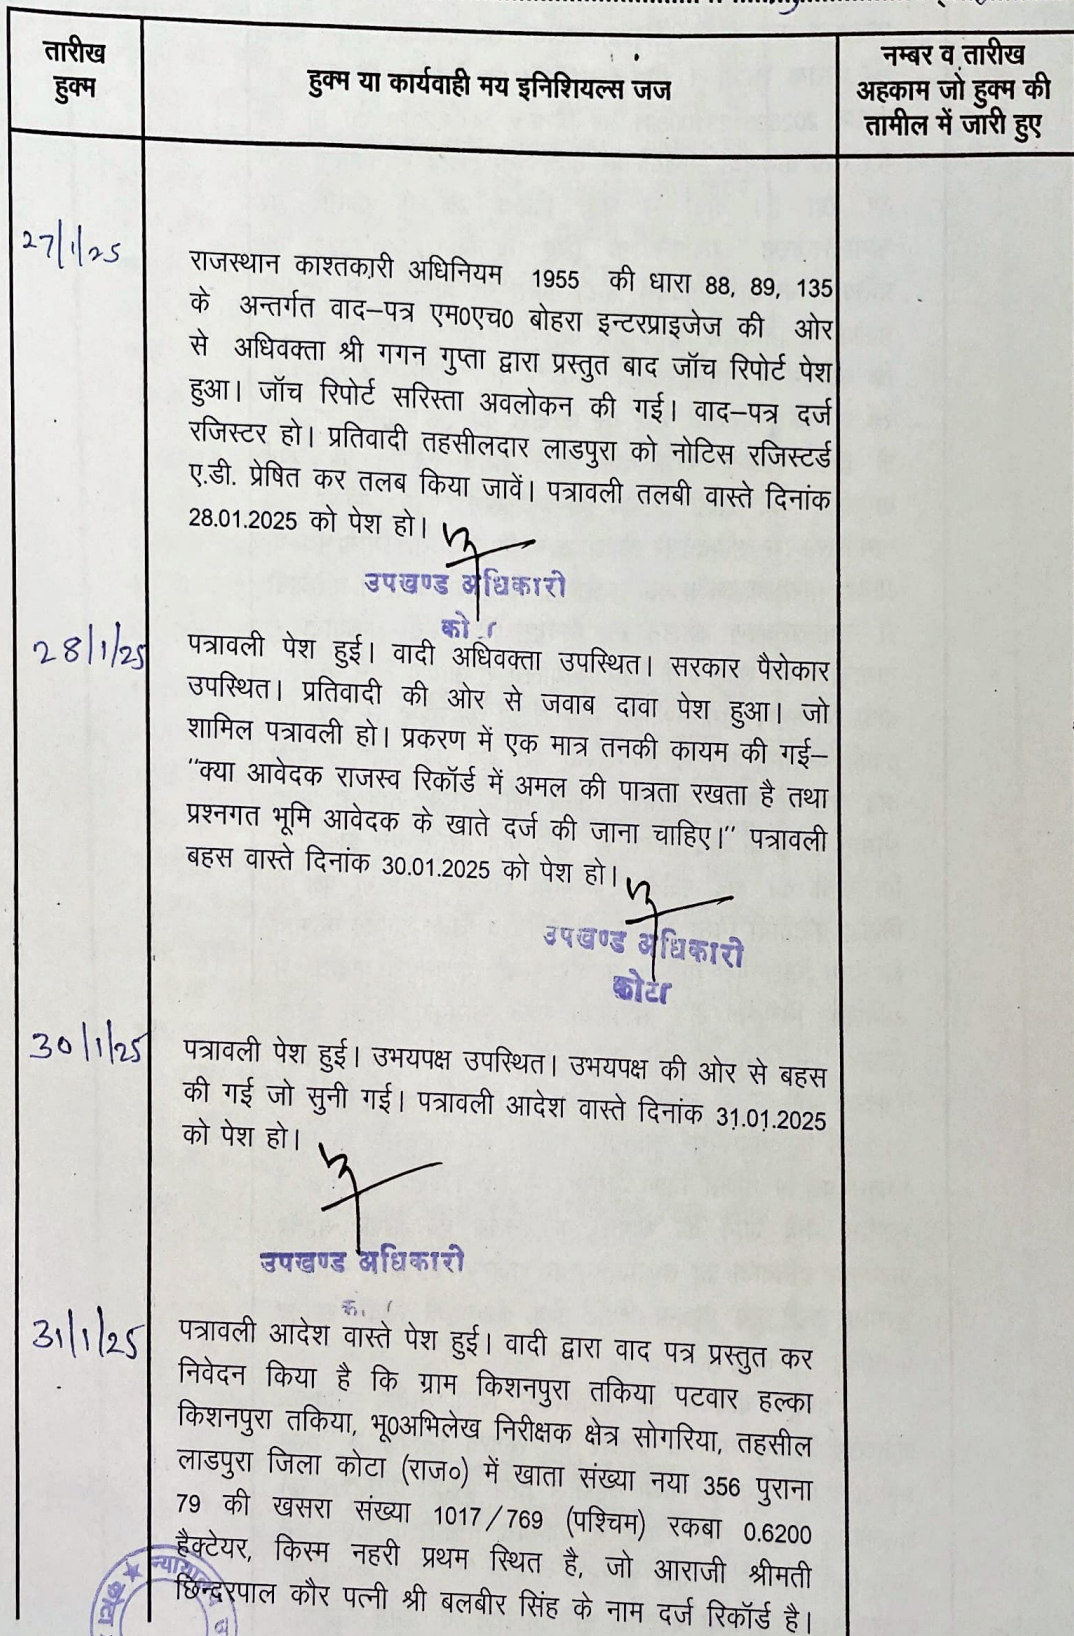 तारीख
हुक्म
हुक्म या कार्यवाही मय इनिशियल्स जज
नम्बर व तारीख
अहकाम जो हुक्म की
तामील में जारी हुए
27/1/25
राजस्थान काश्तकारी अधिनियम 1955 की धारा 88, 89, 135
के अन्तर्गत वाद–पत्र एम0एच0 बोहरा इन्टरप्राइजेज की ओर
से अधिवक्ता श्री गगन गुप्ता द्वारा प्रस्तुत बाद जॉच रिपोर्ट पेश
हुआ। जॉच रिपोर्ट सरिस्ता अवलोकन की गई। वाद–पत्र दर्ज
रजिस्टर हो। प्रतिवादी तहसीलदार लाडपुरा को नोटिस रजिस्टर्ड
ए.डी. प्रेषित कर तलब किया जावें। पत्रावली तलबी वास्ते दिनांक
28.01.2025 को पेश हो।
उपखण्ड अधिकारी
28/1/25
पत्रावली पेश हुई। वादी अधिवक्ता उपस्थित। सरकार पैरोकार
उपस्थित। प्रतिवादी की ओर से जवाब दावा पेश हुआ। जो
शामिल पत्रावली हो। प्रकरण में एक मात्र तनकी कायम की गई–
"क्या आवेदक राजस्व रिकॉर्ड में अमल की पात्रता रखता है तथा
प्रश्नगत भूमि आवेदक के खाते दर्ज की जाना चाहिए।" पत्रावली
बहस वास्ते दिनांक 30.01.2025 को पेश हो।
उपखण्ड अधिकारी
कोटा
30/1/25
पत्रावली पेश हुई। उभयपक्ष उपस्थित। उभयपक्ष की ओर से बहस
की गई जो सुनी गई। पत्रावली आदेश वास्ते दिनांक 31.01.2025
को पेश हो।
उपखण्ड अधिकारी
31/1/25
पत्रावली आदेश वास्ते पेश हुई। वादी द्वारा वाद पत्र प्रस्तुत कर
निवेदन किया है कि ग्राम किशनपुरा तकिया पटवार हल्का
किशनपुरा तकिया, भू0अभिलेख निरीक्षक क्षेत्र सोगरिया, तहसील
लाडपुरा जिला कोटा (राज०) में खाता संख्या नया 356 पुराना
79 की खसरा संख्या 1017/769 (पश्चिम) रकबा 0.6200
हैक्टेयर, किस्म नहरी प्रथम स्थित है, जो आराजी श्रीमती
छिन्द्रपाल कौर पत्नी श्री बलबीर सिंह के नाम दर्ज रिकॉर्ड है।